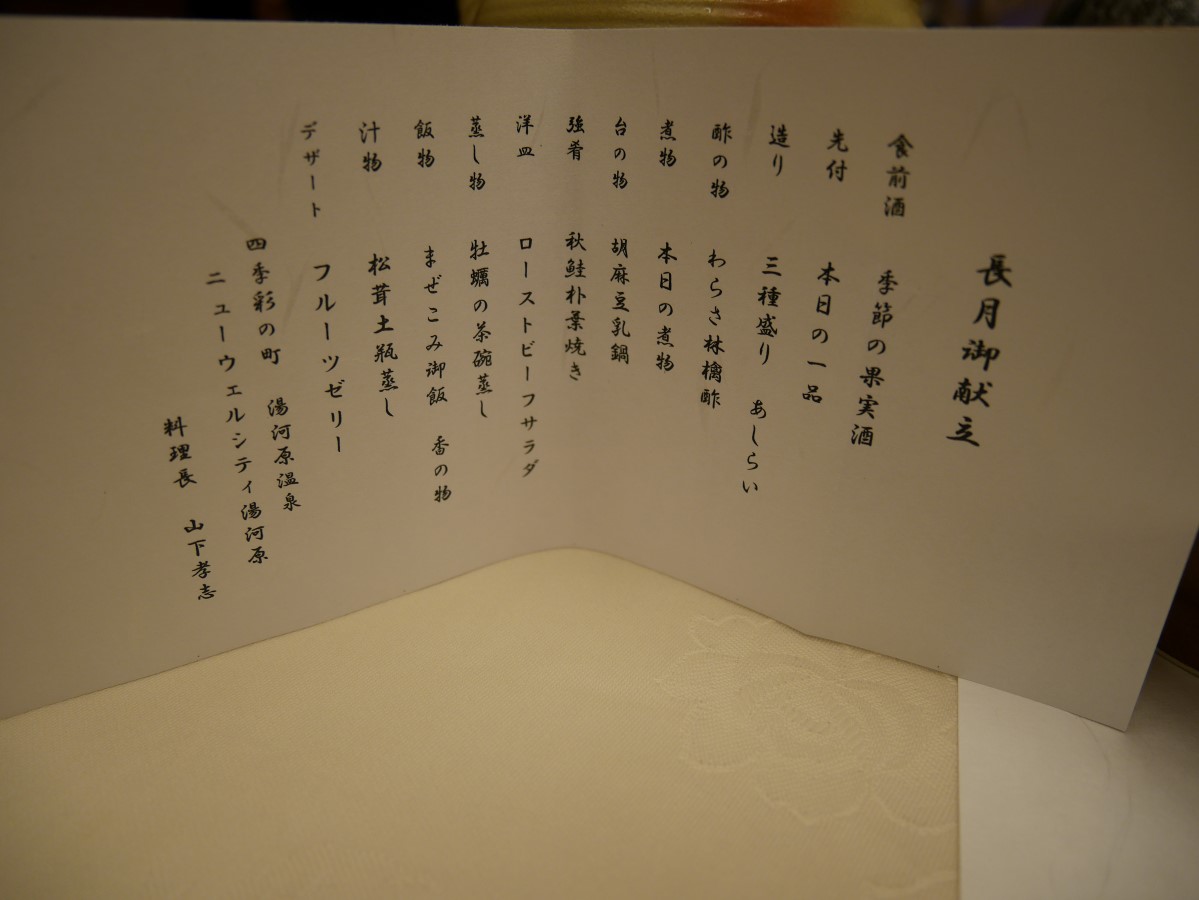 長月御献立
食前酒 季節の果実酒
先付 本日の一品
造り 三種盛り あしらい
酢の物 わらさ林檎酢
煮物 本日の煮物
台の物 胡麻豆乳鍋
強肴 秋鮭朴葉焼き
洋皿 ローストビーフサラダ
蒸し物 牡蠣の茶碗蒸し
飯物 まぜこみ御飯 香の物
汁物 松茸土瓶蒸し
デザート フルーツゼリー
四季彩の町 湯河原温泉
ニューウェルシティ湯河原
料理長 山下孝志